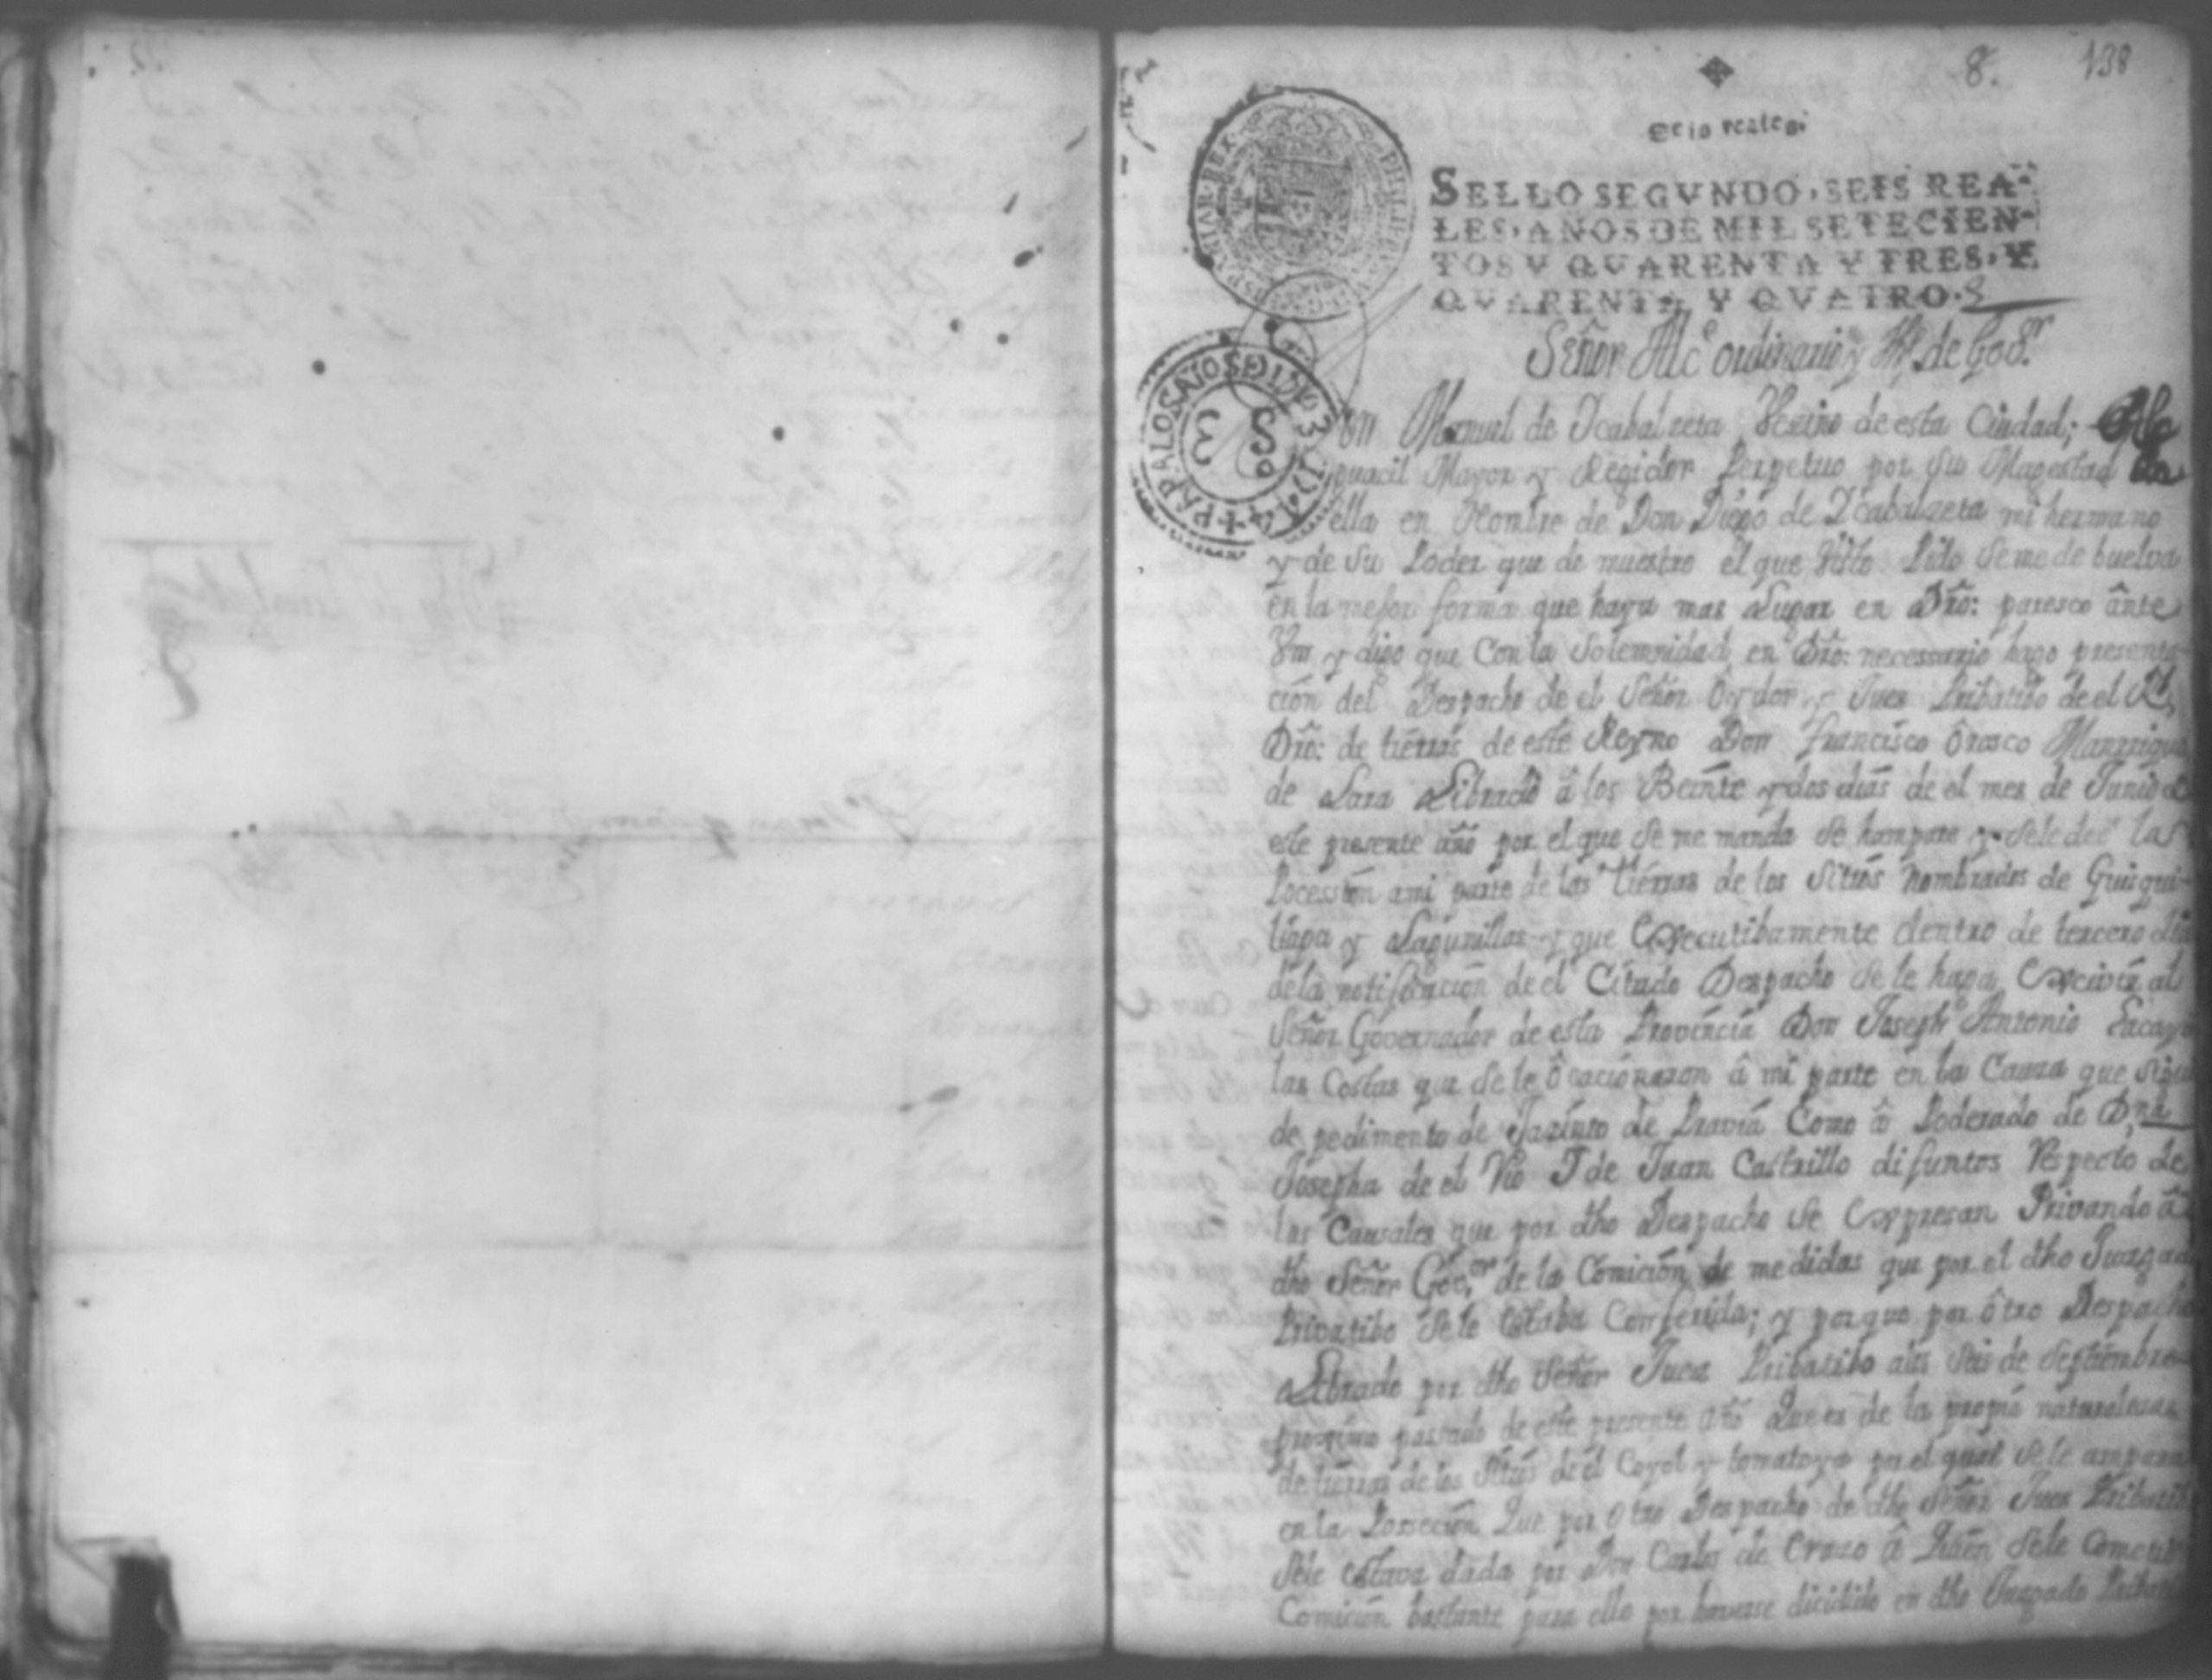 8. 138
Seis reales.
SELLO SEGVNDO, SEIS REA-
LES, AÑOS DE MIL SETECIEN-
TOS Y QVARENTA Y TRES, Y
QVARENTA Y QVATRO.
Señor Alc^e ordinario y de Gov.^or
Dn Manuel de Ycabalzeta Vezino de esta Ciudad; Alg
guacil Mayor y Regidor Perpetuo por su Magestad
ella en Nombre de Don Diego de Ycabalzeta mi hermano
y de su Poder que de muestro el que Visto Pido se me de buelva
en la mejor forma que haya mas Lugar en Dro: paresco ânte
Vm y digo que Con la Solemnidad en Dro: necessario hago presenta-
ción del Despacho de el Señor Oydor y Juez Pribatibo de el Rl,
Dro: de tierras de este Reyno Don Francisco Orosco Manrrique
de Lara Librado â los Beinte y dos dias de el mes de Junio de
este presente año por el que se me manda se hampare y se le dee la
Pocession a mi parte de las tierras de los Sitios Nombrados de Guisqui-
liapa y Lagunillas y que Executibamente dentro de tercero dia
de la notificacion de el Citado Despacho se le haga Excivir al
Señor Governador de esta Provincia Don Joseph Antonio Lacayo
las Costas que se le ôcacionaron â mi parte en la Cauza que sigu
de pedimento de Jazinto de Pravia Como â Poderado de D,na
Josepha de el Rio Y de Juan Castrillo difuntos Respecto de
las Causales que por dho Despacho se Expresan Privando â
dho Señor Gov,or de la Comición de medidas que por el dho Juzgad
Privatibo se le estaba Conferida; y porque por ôtro Despacho
Librado por dho Señor Juez Pribatibo a los seis de Septiembre
proximo passado de este presente año de la propia naturaleza
de tierras de los Sitios de el Coyol y tomatoya por el qual se le ampara
en la Possecion Que por Otro Despacho de dho Señor Juez Pribatib
se le estava dada por Don Carlos de â Quien se le Cometio
Comicion bastante para ello por haverse dicidido en dho Juzgado